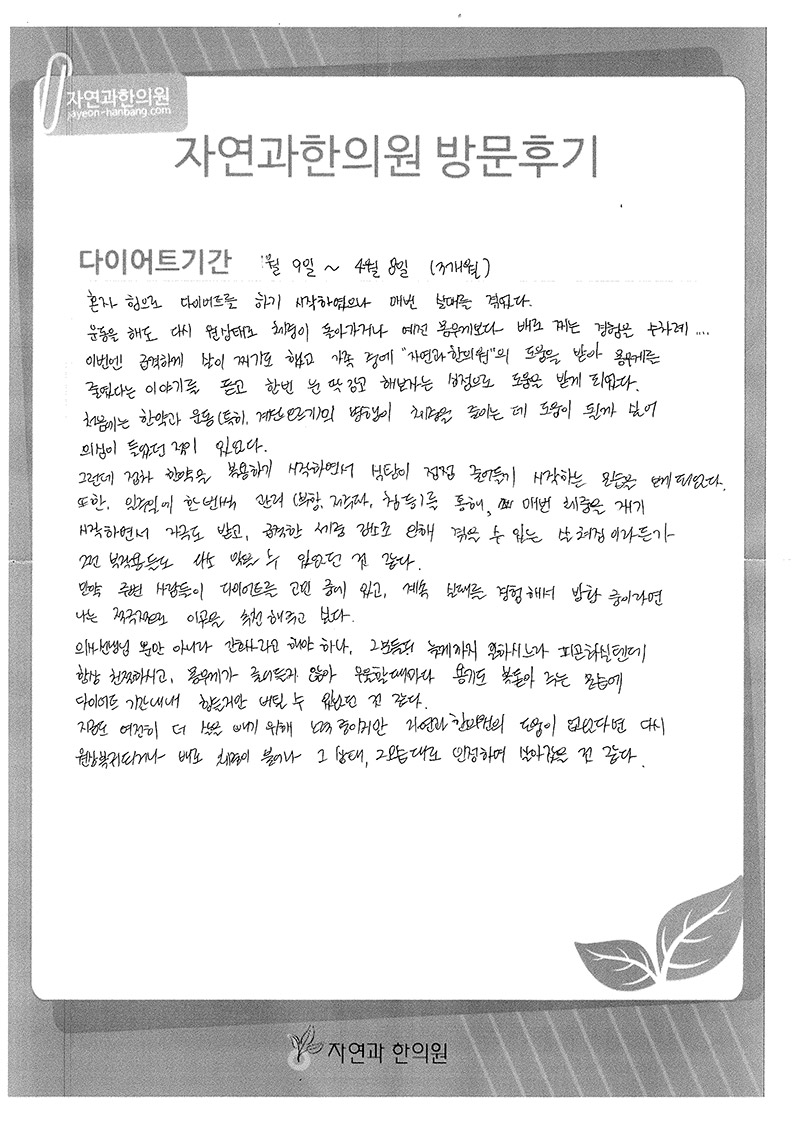 자연과한의원
jayeon-hanbang.com
자연과한의원 방문후기
다이어트기간 월 9일 ~ 4월 8일 (3개월)
혼자 힘으로 다이어트를 하기 시작하였으나 매번 실패를 겪었다.
운동을 해도 다시 원상태로 체중이 돌아가거나 예전 몸무게보다 배로 찌는 경험은 수차례 ....
이번엔 급격하게 살이 찌기도 했고 가족 중에 "자연과한의원"의 도움을 받아 몸무게를
줄였다는 이야기를 듣고 한번 눈 딱 감고 해보자는 심정으로 도움을 받게 되었다.
처음에는 한약과 운동(특히, 계단오르기)의 병행이 체중을 줄이는 데 도움이 될까 싶어
의심이 들었던 적이 있었다.
그런데 점차 한약을 복용하기 시작하면서 식탐이 점점 줄어들기 시작하는 모습을 보게 되었다.
또한, 일주일에 한번씩 관리 (부항, 저주파, 침 등)를 통해, 매번 체중을 재기
시작하면서 자극도 받고, 급격한 체중 감소로 인해 겪을 수 있는 살 처짐이라든가
그런 부작용들도 막을 수 있었던 것 같다.
만약 주변 사람들이 다이어트를 고민 중에 있고, 계속 실패를 경험해서 방황 중이라면
나는 적극적으로 이곳을 추천해주고 싶다.
의사선생님 뿐만 아니라 간호사라고 해야 하나, 그분들도 늦게까지 일하시느라 피곤하실텐데
항상 친절하시고, 몸무게가 줄어들지 않아 우울할때마다 용기도 북돋아 주는 모습에
다이어트 기간내내 힘들지만 버틸 수 있었던 것 같다.
지금도 여전히 더 살을 빼기 위해 노력 중이지만 자연과한의원의 도움이 없었다면 다시
원상복귀되거나 배로 체중이 불어나 그 상태, 그 모습대로 인정하며 살아갔을 것 같다.
자연과 한의원